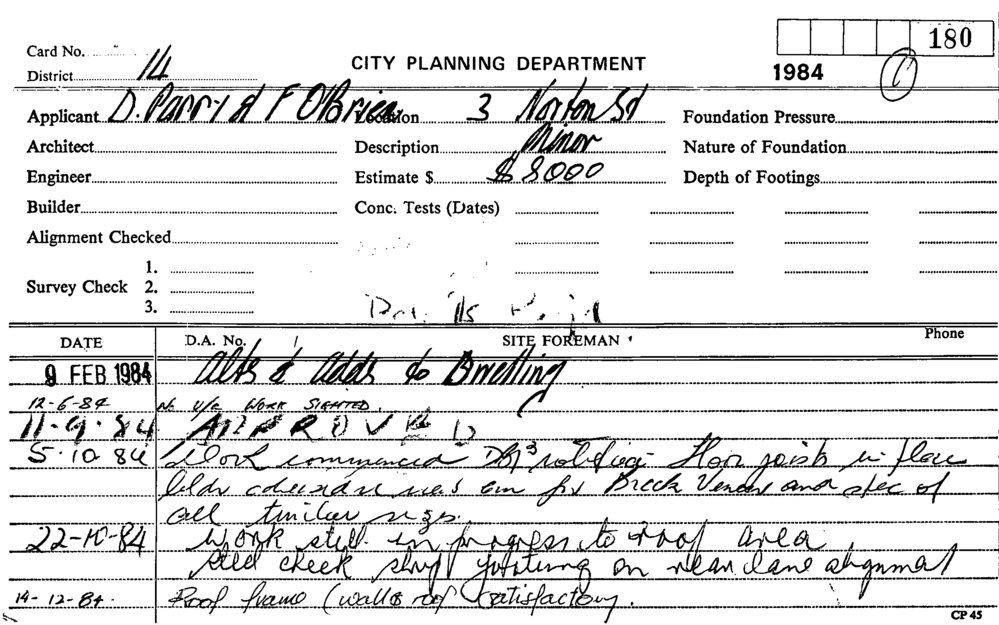 180
Card No.
District 14
CITY PLANNING DEPARTMENT
1984
Applicant D. Parry & F O'Brien Location 3 Norton St Foundation Pressure
Architect Description Minor Nature of Foundation
Engineer Estimate $ $8000 Depth of Footings
Builder Conc. Tests (Dates)
Alignment Checked
1.
Survey Check 2.
3.
DATE D.A. No. SITE FOREMAN Phone
9 FEB 1984 Alts & Adds to Dwelling
12-6-84 No U/C WORK SIGHTED.
11-9-84 APPROVED
5.10 84 Work commenced floor joists in place
bldr for Brick Veneer and spec of
all timber sizes.
22-10-84 Work still in progress to roof area
still check on rear lane alignment
14-12-84. Roof frame (walls roof satisfactory.
CP 45